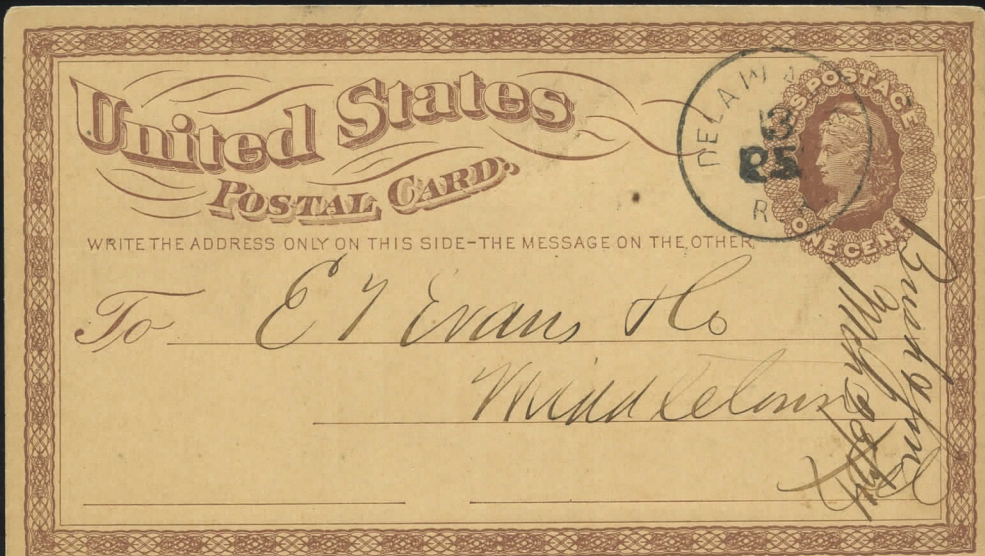 United States
POSTAL CARD.
WRITE THE ADDRESS ONLY ON THIS SIDE-THE MESSAGE ON THE OTHER
U S POSTAGE
ONE CENT
DELAWA
13
25
To E T Evans & Co
Middletown